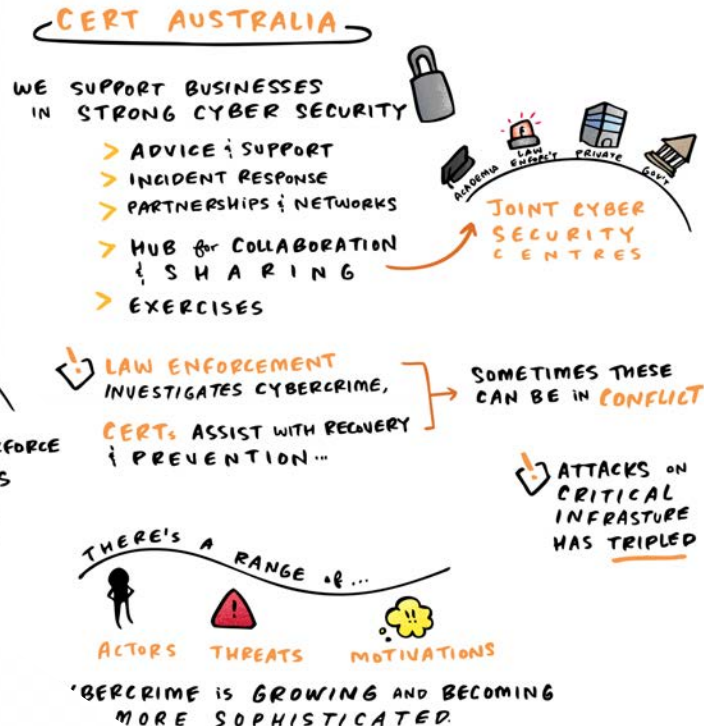 CERT AUSTRALIA
WE SUPPORT BUSINESSES
IN STRONG CYBER SECURITY
> ADVICE & SUPPORT
> INCIDENT RESPONSE
> PARTNERSHIPS & NETWORKS
> HUB for COLLABORATION
& SHARING
> EXERCISES
ACADEMIA
LAW
ENFORC'T
PRIVATE
GOV'T
JOINT CYBER
SECURITY
CENTRES
! LAW ENFORCEMENT
INVESTIGATES CYBERCRIME,
CERTs ASSIST WITH RECOVERY
& PREVENTION...
SOMETIMES THESE
CAN BE in CONFLICT
! ATTACKS ON
CRITICAL
INFRASTURE
HAS TRIPLED
THERE'S A RANGE of...
!
!!
ACTORS
THREATS
MOTIVATIONS
BERCRIME is GROWING AND BECOMING
MORE SOPHISTICATED.